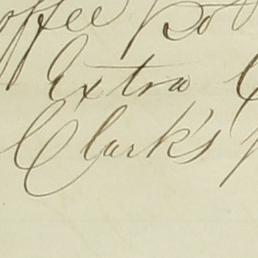 offee Pot
Extra
Clark's